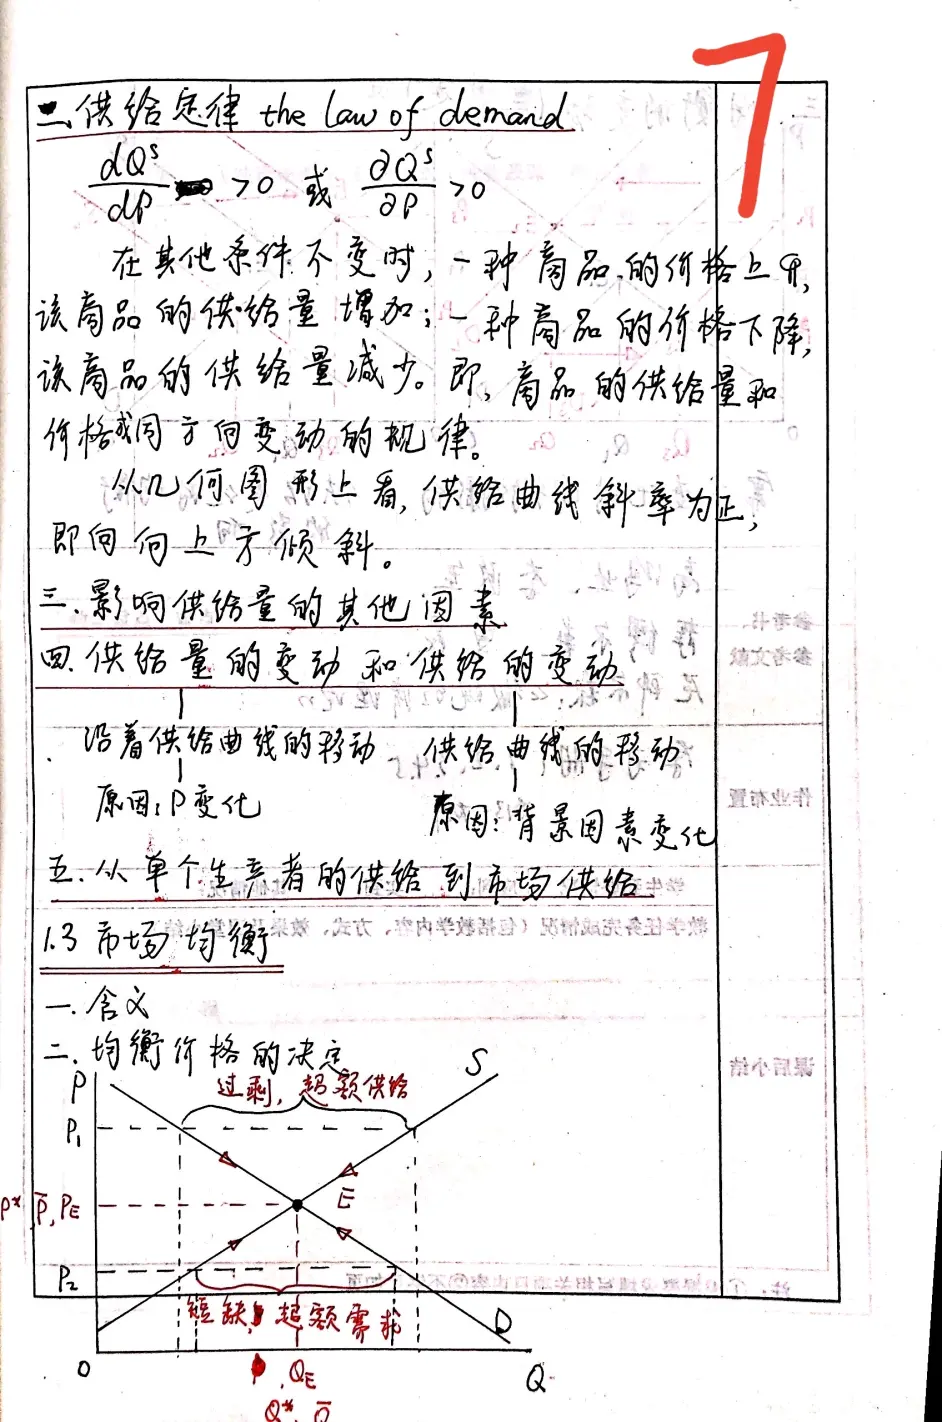 7
二.供给定律 the law of demand
dQˢ/dP >0 或 ∂Qˢ/∂P >0
在其他条件不变时,一种商品的价格上升,
该商品的供给量增加;一种商品的价格下降,
该商品的供给量减少。即,商品的供给量和
价格成同方向变动的规律。
从几何图形上看,供给曲线斜率为正,
即向向上方倾斜。
三.影响供给量的其他因素
四.供给量的变动和供给的变动
沿着供给曲线的移动 供给曲线的移动
原因:P变化 原因:背景因素变化
五.从单个生产者的供给到市场供给
1.3 市场均衡
一.含义
二.均衡价格的决定
P 过剩,超额供给 S
P₁
P* P̄,P_E E
P₂
短缺 超额需求 D
0 Q_E Q
Q* Q̄
参考书、
参考文献
作业布置
课后小结